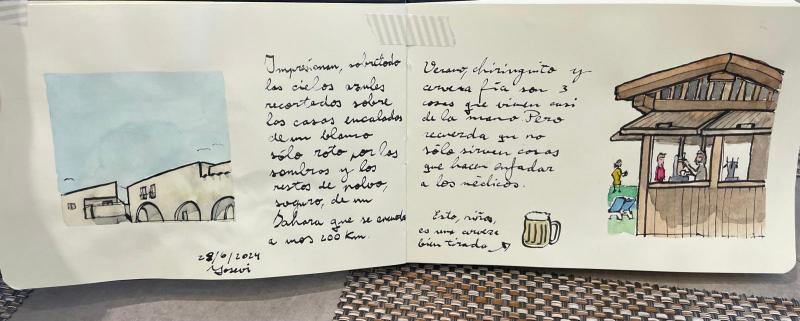 Impresionan, sobretodo
los cielos azules
recortados sobre
las casas encaladas
de un blanco
sólo roto por las
sombras y los
restos de polvo,
seguro, de un
Sahara que se
a unos 200 Km.
28/6/2024
Verano, chiringuito y
cerveza fía son 3
cosas que vienen casi
de la mano. Pero
recuerda qu no
sólo sirven cosas
que hacen enfadar
a los médicos.
Esto, niños,
es una cerveza
bien tirada